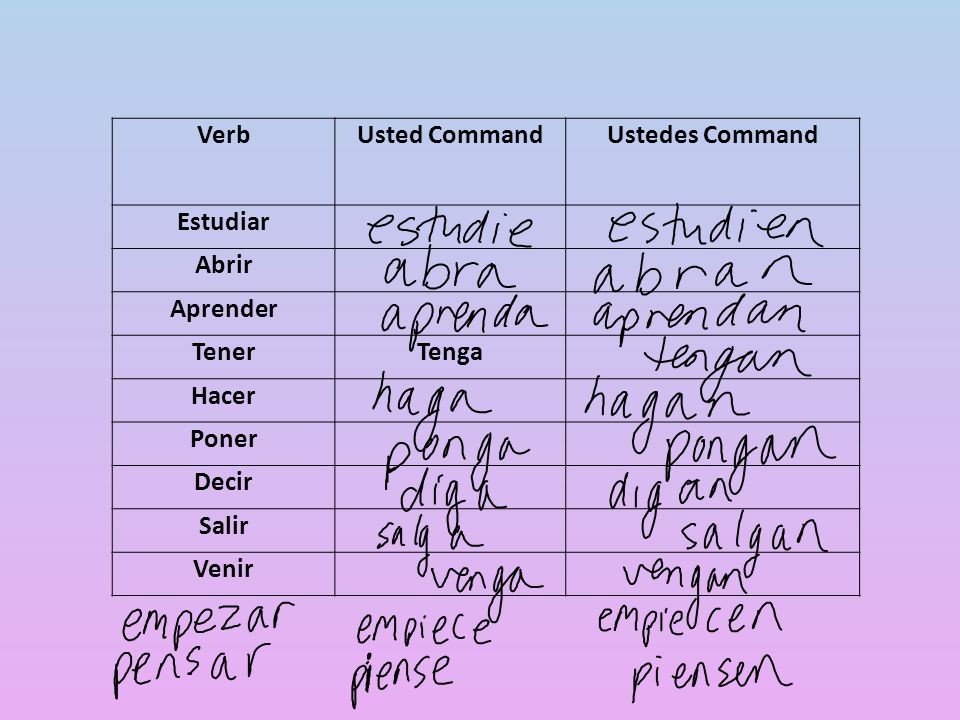 Verb Usted Command Ustedes Command
Estudiar estudie estudien
Abrir abra abran
Aprender aprenda aprendan
Tener Tenga tengan
Hacer haga hagan
Poner ponga pongan
Decir diga digan
Salir salga salgan
Venir venga vengan
empezar empiece empiecen
pensar piense piensen